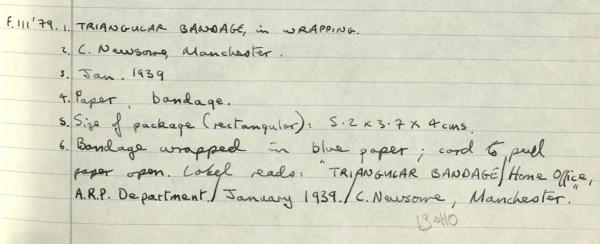 F.III'79. 1. TRIANGULAR BANDAGE, in WRAPPING.
2. C. Newsome, Manchester.
3. Jan. 1939
4. Paper, bandage.
5. Size of package (rectangular): 5.2 x 3.7 x 4 cms.
6. Bandage wrapped in blue paper; cord to pull
paper open. Label reads: "TRIANGULAR BANDAGE/Home Office,
A.R.P. Department./January 1939./C. Newsome, Manchester."